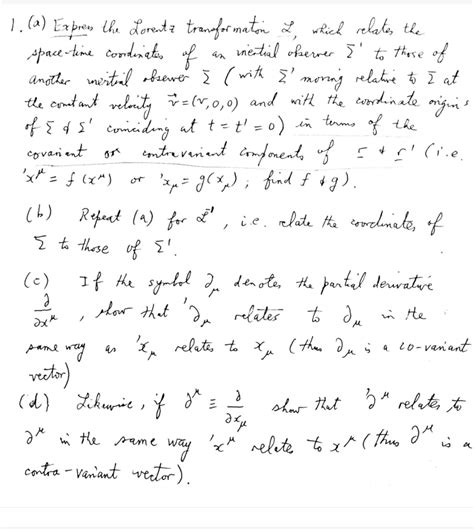 1. (a) Express the Lorentz transformation L, which relates the
space-time coordinates of an inertial observer Σ' to those of
another inertial observer Σ (with Σ' moving relative to Σ at
the constant velocity v⃗ = (v,0,0) and with the coordinate origins
of Σ & Σ' coinciding at t = t' = 0) in terms of the
covariant or contravariant components of r & r' (i.e.
'x^μ = f(x^μ) or 'x_μ = g(x_μ); find f & g).
(b) Repeat (a) for L⁻¹, i.e. relate the coordinates of
Σ to those of Σ'.
(c) If the symbol ∂_μ denotes the partial derivative
∂/∂x^μ, show that '∂_μ relates to ∂_μ in the
same way as 'x_μ relates to x_μ (thus ∂_μ is a co-variant
vector)
(d) Likewise, if ∂^μ ≡ ∂/∂x_μ show that '∂^μ relates to
∂^μ in the same way 'x^μ relate to x^μ (thus ∂^μ is a
contra-variant vector).